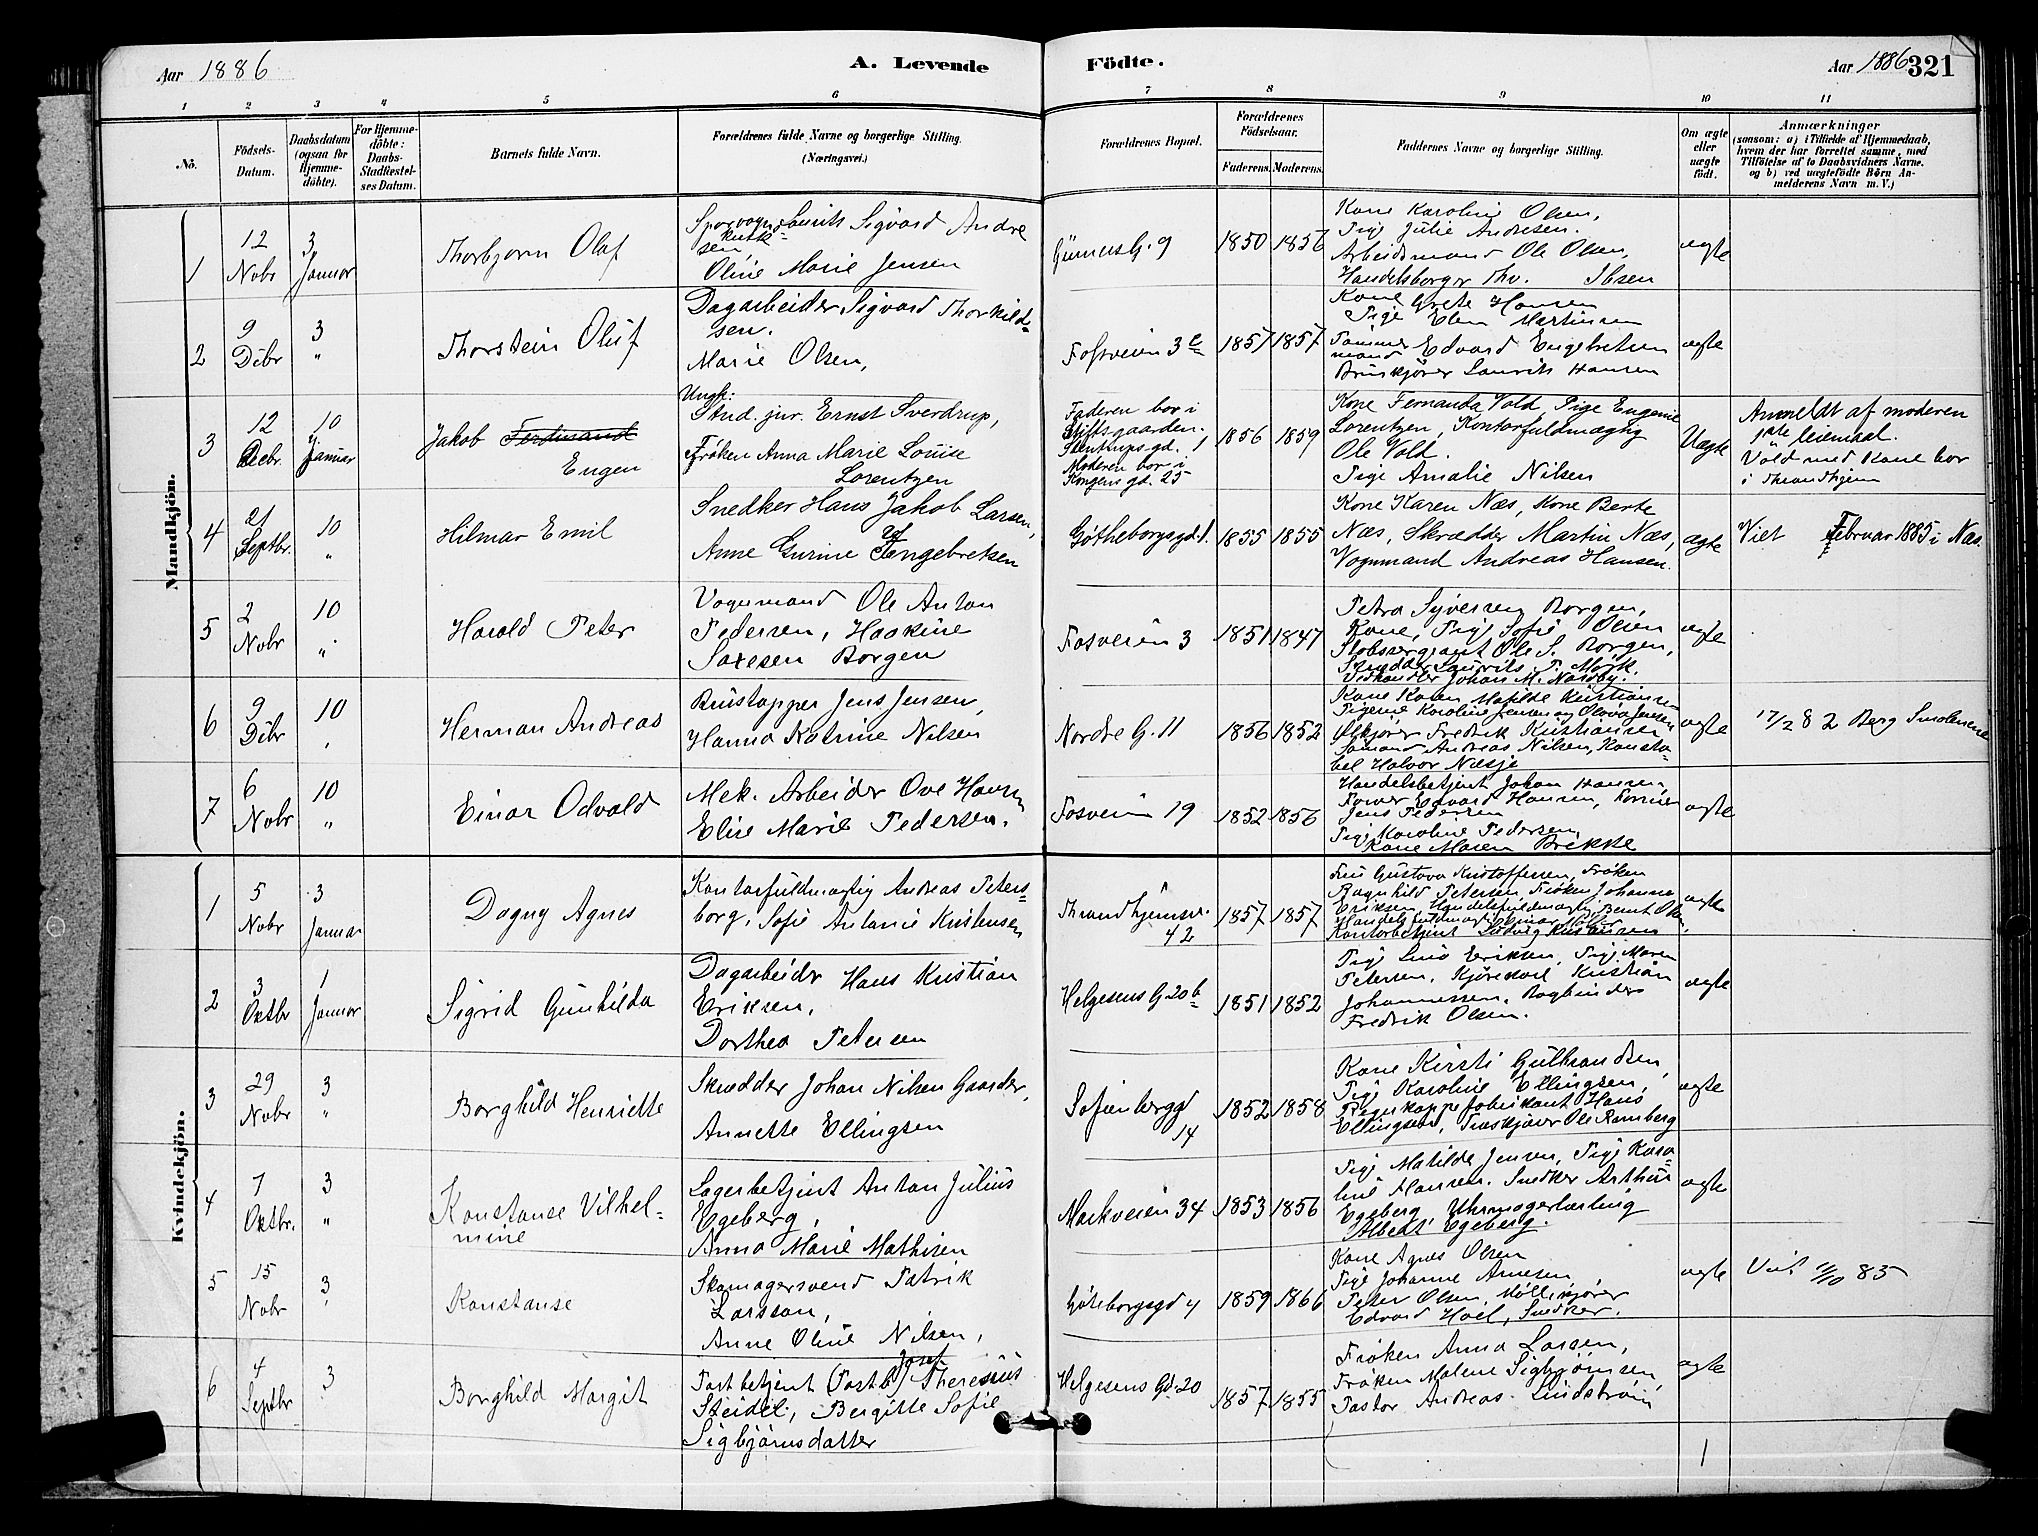 Aar 1886
A. Levende Födte.
Aar 1886 321
1 2 3 4 5 6 7 8 9 10 11
No.
Födsels-Datum.
Daabsdatum (ogsaa for Hjemme-döbte).
For Hjemme-döbte: Daabs-Stadfæstel-ses Datum.
Barnets fulde Navn.
Forældrenes fulde Navne og borgerlige Stilling.
(Næringsvei.)
Forældrenes Bopæl.
Forældrenes Födselsaar.
Faderens. Moderens.
Faddernes Navne og borgerlige Stilling.
Om ægte eller uægte født.
Anmærkninger
(saasom: a) i Tilfælde af Hjemmedaab,
hvem der har forrettet samme, med
Tilföielse af to Daabsvidners Navne.
og b) ved uægtefödte Börn An-
melderens Navn m. V.)
Mandkjön.
1
12 Nobr
3 Januar
Thorbjørn Olaf
Sporvognskusk Laurits Sigvard Andre
sen
Oline Marie Jensen
G. 9
1850 1856
Kone Karoline Olsen,
Pige Julie Andresen.
Arbeidsmand Ole Olsen,
Handelsborger Thv. Ibsen
ægte
2
9 Dcbr
3 "
Thorstein Oluf
Dagarbeider Sigvard Thorkild-
sen.
Marie Olsen,
Fossveien 3
1857 1857
Kone Grete Hansen
Pige Elen Martinsen
Tømmermand Edvard Engebretsen
Bruskjører Laurits Hansen
ægte
3
12 Decbr.
10 Januar
Jakob Ferdinand
Eugen
Ungk:
Stud. jur. Ernst Sverdrup,
Frøken Anna Marie Louise
Lorentzen
Faderen bor i
Stiftsgaarden.
Stentrupsgd. 1
Moderen bor i
Kongens gd. 25
1856 1859
Kone Fernanda Vold, Pige Eugenie
Lorentzen, Kontorfuldmægtig
Ole Vold.
Pige Amalie Nilsen
Uægte
Anmeldt af moderen
1ste leiermaal.
Vold med Kone bor
i Throndhjem
4
21 Septbr.
10 "
Hilmar Emil
Snedker Hans Jakob Larsen,
Anne Gurine Engebretsen
Gøtheborgsgd. 1.
1855 1855
Kone Karen Næs, Kone Berte
Næs, Skrædder Martin Næs,
Vognmand Andreas Hansen.
ægte
Viet Februar 1885 i Næs.
5
2 Nobr
10 "
Harald Peter
Vognmand Ole Anton
Pedersen, Haakine
Saxesen Borgen
Fosveien 3
1851 1847
Petra Syversen Borgen,
Kone, Pige Sofie Olsen
Stabssergeant Ole S. Borgen,
Skrædder Laurits P. Mørk.
Vedhandler Johan M. Næsby.
ægte
6
9 Dcbr
10 "
Herman Andreas
Brustapper Jens Jensen,
Hanna Katrine Nilsen
Nordre G. 11
1856 1852
Kone Karen Matilde Kristiansen
Pigerne Karoline Jensen og Olava Jensen
Ølkjører Fredrik Kristiansen
Sømand Andreas Nilsen, Konsta-
bel Halvor Næsje
ægte
17/2 82 Berg Smolenene
7
6 Nobr
10 "
Einar Odvald
Mek. Arbeider Ove Hansen
Elise Marie Pedersen.
Fosveien 19
1852 1856
Handelsbetjent Johan Hansen,
Edvard Hansen,
Jens Pedersen
Pige Karoline Pedersen,
Kone Maren Brekke
ægte
Kvindekjön.
1
5 Nobr
3 Januar
Dagny Agnes
Kontorfuldmægtig Andreas Peters-
borg, Sofie Antonie Kristensen
Throndhjemsv.
42
1857 1857
Fru Gustava Kristoffersen, Frøken
Ragnhild Petersen, Frøken Johanna
Eriksen, Handelsfuldmægtig Bernt Olsen,
Handelsfuldmægtig Einar
Kontorbetjent Ludvig Kristensen
ægte
2
3 Oktbr
1 Januar
Sigrid Gunhilda
Dagarbeider Hans Kristian
Eriksen,
Dorthea Petersen
Helgesens G 20 b
1851 1852
Pige Lina Eriksen, Pige Maren
Petersen, Kjørekarl Kristian
Johannessen, Bogbinder
Fredrik Olsen.
ægte
3
29 Nobr
3 "
Borghild Henriette
Skrædder Johan Nilsen Gaarder,
Annette Ellingsen
Sofienberggd
14
1852 1858
Kone Kirsti Gulbrandsen,
Pige Karoline Ellingsen,
Regnkappefabrikant Hans
Ellingsen, Ole Ramberg
ægte
4
7 Oktbr.
3 "
Konstanse Vilhel-
mine
Lagerbetjent Anton Julius
Egeberg,
Anna Marie Mathisen
Markveien 34
1853 1856
Pige Matilde Jensen, Pige Karo-
line Hansen. Snedker Arthur
Egeberg Uhrmagerlærling
Albert Egeberg.
ægte
5
15 Nobr
3 "
Konstanse
Skomagersvend Patrik
Larsson,
Anne Oline Nilsen,
Gøteborgsgd 4
1859 1866
Kone Agnes Olsen
Pige Johanne Arnesen
Peter Olsen, Møllekjører
Edvard Hoel, Snedker.
ægte
Viet 11/10 85
6
4 Septbr
3
Borghild Margit
Postbetjent (Postb.) Josef Theresius
Steidel, Bergitte Sofie
Sigbjørnsdatter
Helgesens Gd. 20
1857 1855
Frøken Anna Larsen,
Frøken Malene Sigbjørnsen
Pastor Andreas Lindstrøm
ægte
1